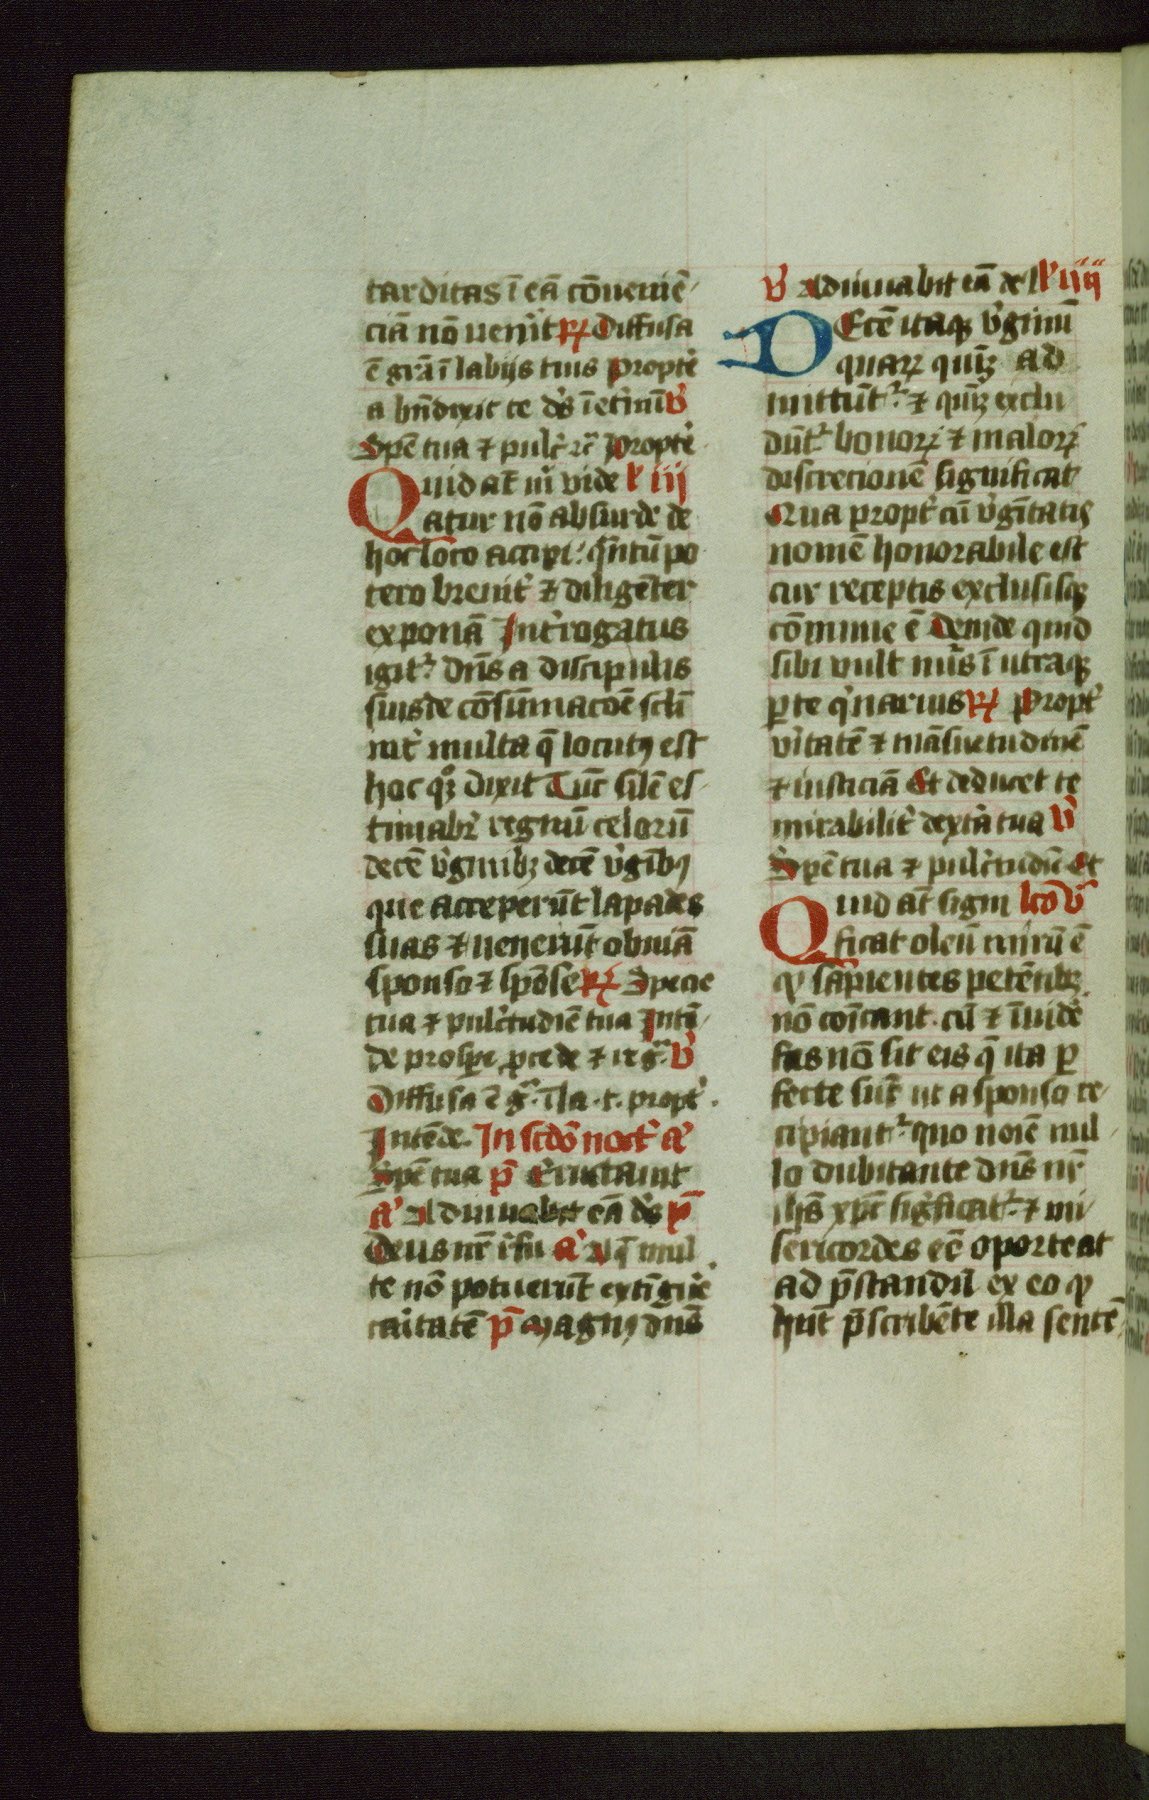 tarditas ī eā cōueniē
ciā nō uen̄it ꝶ Diffusa
ē gr̄a ī labijs tuis Propt̓e
a bn̄dixit te ds̄ ī et̓nū ℣
Spē tua ⁊ pulc̓ ⁊c̄ Propt̓e
Quid at̄ m̄ vide l̓ iij
atur nō absurde de
hoc loco accipi q̓ntū po
tero breuit̓ ⁊ diligēter
exponā Int̓rogatus
igit᷑ dn̄s a discipulis
suis de cōsūmacōe sc̄li
int̓ multa q̄ locutꝯ est
hoc qꝫ dixit Tūc sil̄e es
timabr̄ regnū celorū
decē v̓ginibꝫ decē v̓gībꝯ
que acceperūt lāpades
suas ⁊ uenerūt obuiā
sponso ⁊ spōse ꝶ Specie
tua ⁊ pulc̓tudīe tua Intē
de prosp̱e ꝓcede ⁊ reg̓ ℣
Diffusa ē g̓ ī la t propt̓
Intēde In sc̄do noct̓ a᷑
Spē tua p̄ Eructauit
a᷑ Adiuuabit eā ds̄ p̄
Deus nr̄ refu a᷑ Aq̄ mul
te nō potuerūt extīgu̓e
caritatē p̄ Magnꝯ dn̄s
℣ Adiuuabit eā de l̓ iiij
Decē itaqꝫ v̓ginū
quaꝝ quīqꝫ ad
mittūt᷑ ⁊ quīqꝫ exclu
dūt᷑ bonoꝝ ⁊ maloꝝ
discrecionē significat
Qua propt̓ cū v̓gītatis
nomē honorabile est
cur receptis exclusisqꝫ
cōmune ē Deinde quid
sibi uult nūs ī utraqꝫ
ꝑte q̓narius ꝶ Propt̓
v̓itatē ⁊ māsuetudinē
⁊ iusticiā Et deducet te
mirabilit̓ dext̓a tua ℣
Spē tua ⁊ pulc̓tudīe Et
Quid at̄ signi lc̄o v̓
ficat oleū mirū ē
qꝫ sapientes petētibꝫ
nō cōīcant cū ⁊ īuide
fas nō sit eis q̄ ita ꝑ
fecte sūt ut a sponso re
cipiant᷑ quo noīe nul
lo dubitante dn̄s nr̄
ihs̄ xp̄c sig̓ficat᷑ ⁊ mi
sericordes eē oporteat
ad p̄standū ex eo qꝫ
hn̄t p̄scribēte illa sentē